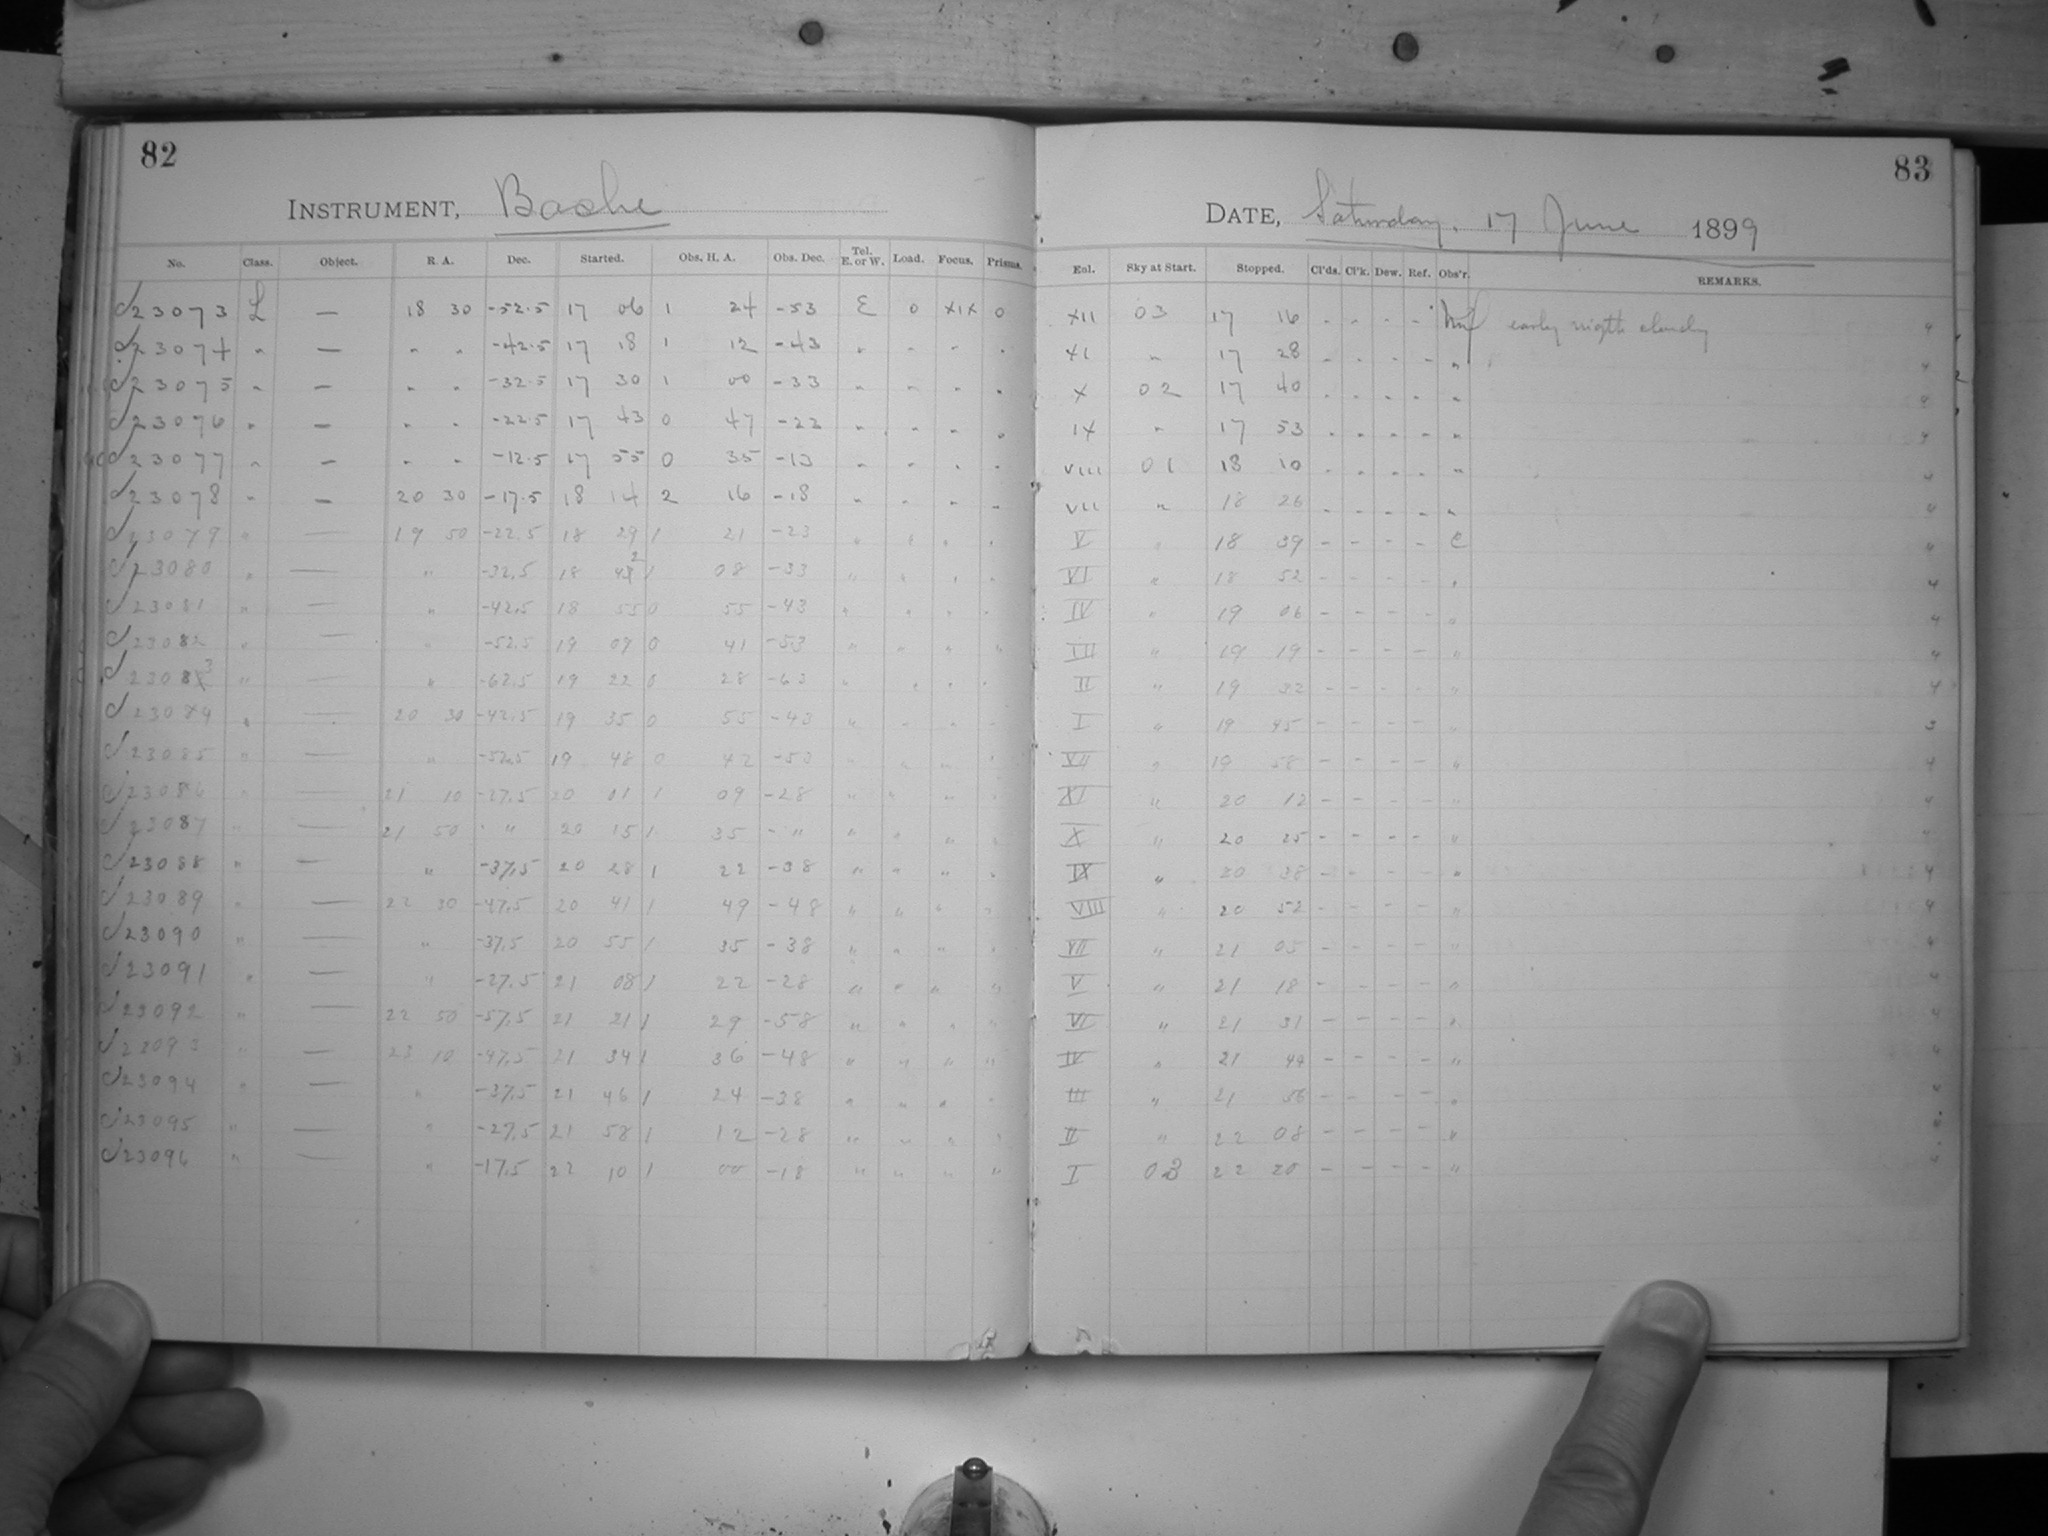 82
INSTRUMENT, Bache
No. Class. Object. R. A. Dec. Started. Obs. H. A. Obs. Dec. Tel. E. or W. Load. Focus. Prisms.
23073 L — 18 30 -52.5 17 06 1 24 -53 E 0 XIX 0
23074 " — " " -42.5 17 18 1 12 -43 " " " "
23075 " — " " -32.5 17 30 1 00 -33 " " " "
23076 " — " " -22.5 17 43 0 47 -22 " " " "
23077 " — " " -12.5 17 55 0 35 -13 " " " "
23078 " — 20 30 -17.5 18 14 2 16 -18 " " " "
23079 " — 19 50 -22.5 18 29 1 21 -23 " " " "
23080 " — " -32.5 18 42 1 08 -33 " " " "
23081 " — " -42.5 18 55 0 55 -43 " " " "
23082 " — " -52.5 19 09 0 41 -53 " " " "
23083 " — " -62.5 19 22 0 28 -63 " " " "
23084 " — 20 30 -42.5 19 35 0 55 -43 " " " "
23085 " — " -52.5 19 48 0 42 -53 " " " "
23086 " — 21 10 -27.5 20 01 1 09 -28 " " " "
23087 " — 21 50 " 20 15 1 35 - " " " " "
23088 " — " -37.5 20 28 1 22 -38 " " " "
23089 " — 22 30 -47.5 20 41 1 49 -48 " " " "
23090 " — " -37.5 20 55 1 35 -38 " " " "
23091 " — " -27.5 21 08 1 22 -28 " " " "
23092 " — 22 50 -57.5 21 21 1 29 -58 " " " "
23093 " — 23 10 -47.5 21 34 1 36 -48 " " " "
23094 " — " -37.5 21 46 1 24 -38 " " " "
23095 " — " -27.5 21 58 1 12 -28 " " " "
23096 " — " -17.5 22 10 1 00 -18 " " " "
83
DATE, Saturday, 17 June 1899
Eol. Sky at Start. Stopped. Cl'ds. Cl'k. Dew. Ref. Obs'r. REMARKS.
XII 03 17 16 - - - - early night cloudy 4
XI " 17 28 - - - - " 4
X 02 17 40 - - - - " 4
IX " 17 53 - - - - " 4
VIII 01 18 10 - - - - "
VII " 18 26 - - - - " 4
V " 18 39 - - - - C 4
VI " 18 52 - - - - " 4
IV " 19 06 - - - - " 4
III " 19 19 - - - - " 4
II " 19 32 - - - - " 4
I " 19 45 - - - - " 3
VII " 19 58 - - - - " 4
XI " 20 12 - - - - " 4
X " 20 25 - - - - " 4
IX " 20 38 - - - - " 4
VIII " 20 52 - - - - " 4
VII " 21 05 - - - - " 4
V " 21 18 - - - - " 4
VI " 21 31 - - - - " 4
IV " 21 44 - - - - " 4
III " 21 56 - - - - "
II " 22 08 - - - - "
I 03 22 20 - - - - "